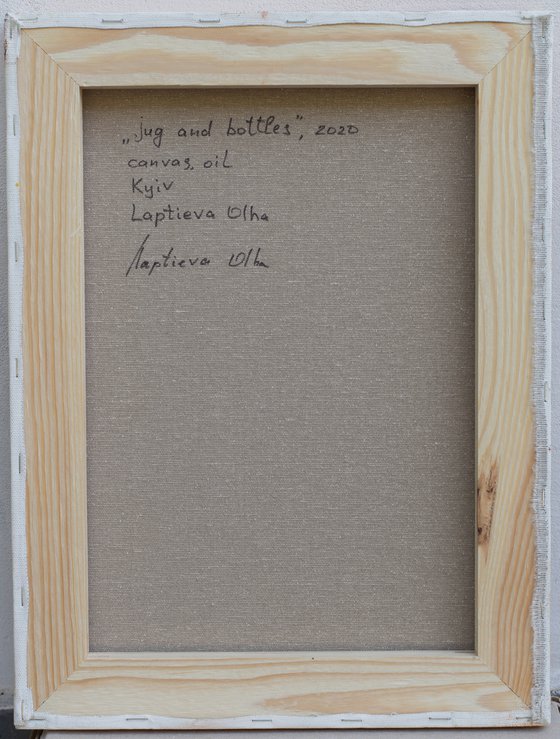 „jug and bottles”, 2020
canvas, oil
Kyiv
Laptieva Olha
Laptieva Olha